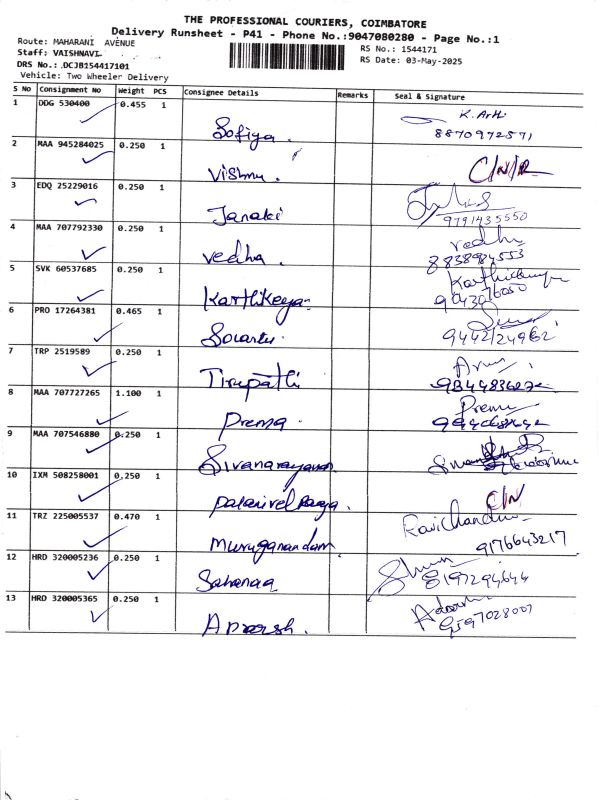 THE PROFESSIONAL COURIERS, COIMBATORE
Delivery Runsheet - P41 - Phone No.:9047080280 - Page No.:1
Route: MAHARANI AVENUE
Staff: VAISHNAVI
DRS No.: DCJB154417101
Vehicle: Two Wheeler Delivery
RS No.: 1544171
RS Date: 03-May-2025
S No Consignment No Weight PCS Consignee Details Remarks Seal & Signature
1 DDG 530400 0.455 1 Sofiya. K. Arthi
8870972571
2 MAA 945284025 0.250 1 Vishnu. C/N/R
3 EDQ 25229016 0.250 1 Janaki
9791435550
4 MAA 707792330 0.250 1 vedha. vedha
5 SVK 60537685 0.250 1 Karthikeya.
6 PRO 17264381 0.465 1
7 TRP 2519589 0.250 1 Tirupathi Arun
8 MAA 707727265 1.100 1 Prema. Prema
9 MAA 707546880 0.250 1 Sivanarayanan
10 IXM 508258001 0.250 1 C/N
11 TRZ 225005537 0.470 1 Muruganandam. Ravichandran
9176643217
12 HRD 320005236 0.250 1 Sahanaa
8197294644
13 HRD 320005365 0.250 1
9597028007